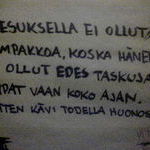 ESUKSELLA EI OLLUT
MPAKKOA, KOSKA HÄNE
OLLUT EDES TASKUSA
PAT VAAN KOKO AJAN.
TEN KÄVI TODELLA HUONOS